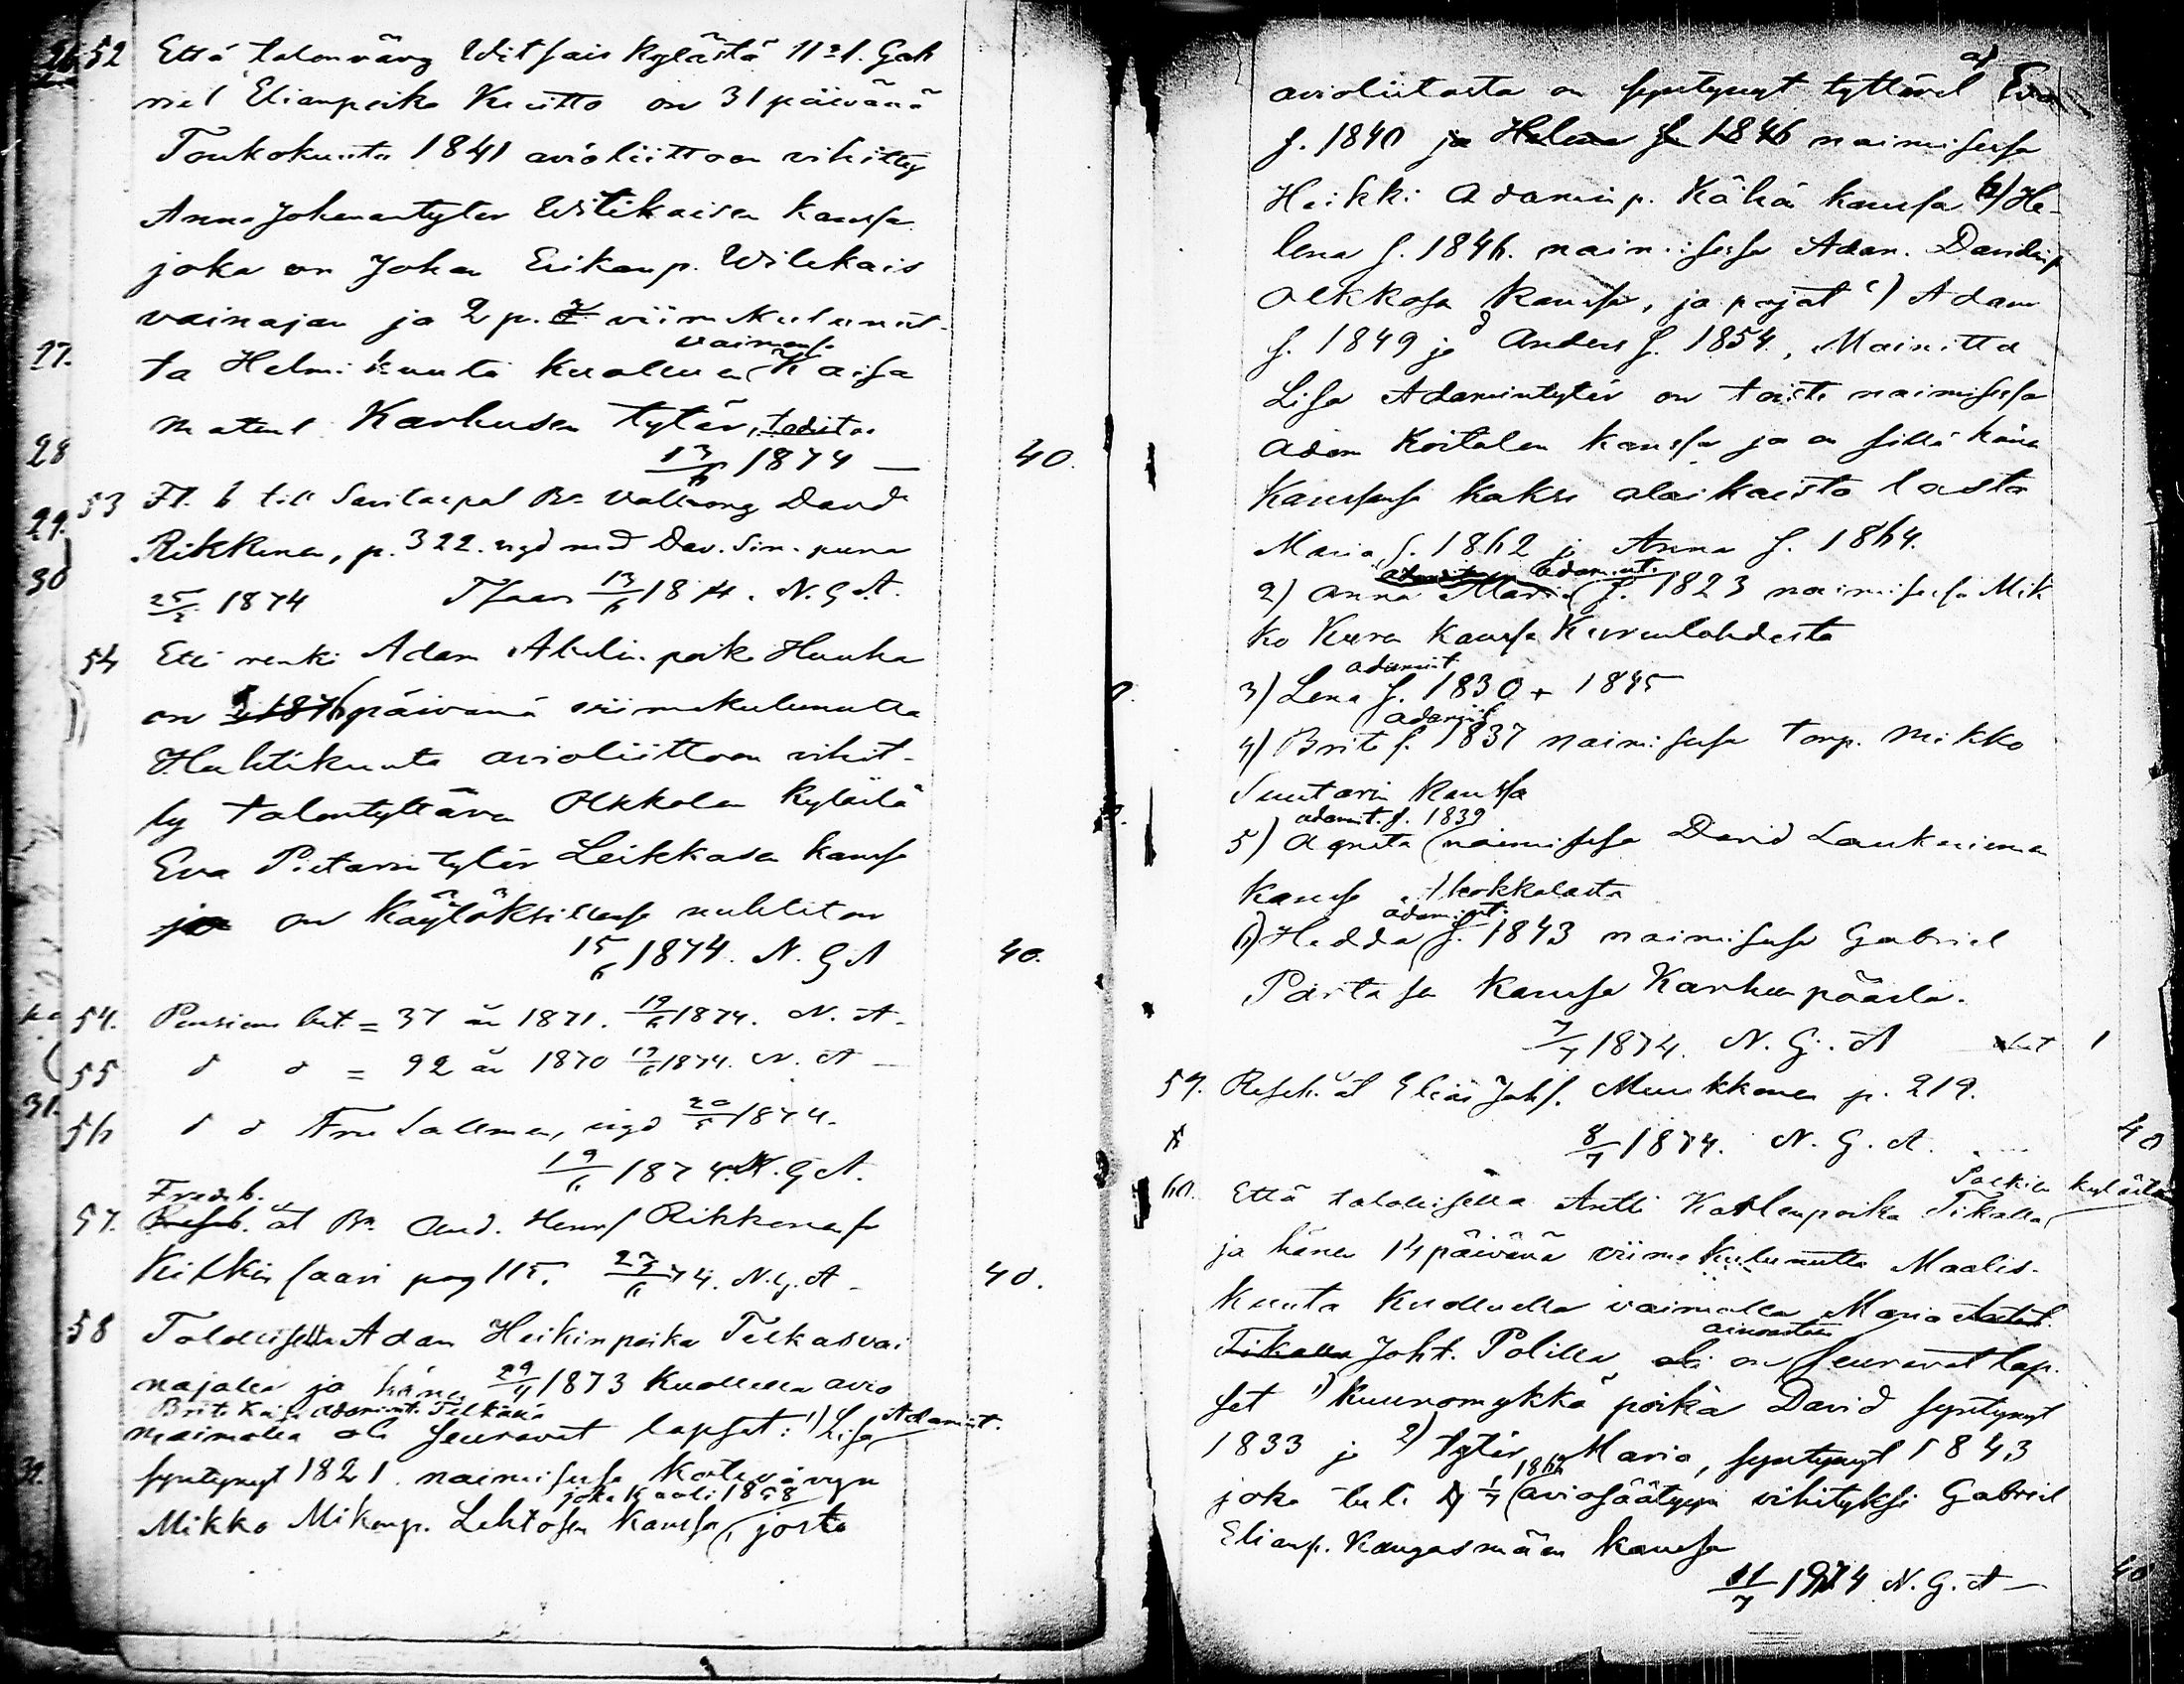 52 Että talonvävy Witsais kylästä No 1. Gab
riel Elianpoika Kuitto on 31 päivänä
Toukokuuta 1841 avioliittoon vihitty
Anna Johanantytär Witikaisen kanssa
joka on Johan Erikanp. Witikais
vainajan ja 2 p. viimekulunut-
ta Helmikuuta kuolleen vaimonsa Kaisa
Matint. Karhusen tytär, todistaa
13/6 1874 — 40.
53 Fl. b till Savitaipal Bs. David
Rikkinen, p. 322. vigd med Dav. Sim.
25/5 1874 13/6 1874. N. G. A.
54 Että renki Adam Abelin poika Huuha
on päivänä viimekulunutta
Huhtikuuta avioliittoon vihit-
ty talontyttären Olkkolan kylästä
Eva Pietarintytär Leikkasen kanssa
ja on käytöksillensä nuhteeton
15/6 1874. N. G A 40.
54. Pension bet. = 37 år 1871. 19/6 1874. N. A.
55 d d = 92 år 1870 19/6 1874. N. A —
56 d d Fru Sallmen, vigd 20/5 1874.
19/6 1874. N. G A.
Fredsb.
57. åt Bs. And. Henrs. Rikkinen fr
Kilkinsaari pag 115. 23/6 74. N. G. A — 40.
58 Talollisella Adam Heikinpoika Telkäs vai
najalla ja hänen 29/4 1873 kuolleella avio
Brita Kaisa Adamint. Telkänä
vaimolla oli seuravat lapset: 1) Lisa Adamint.
syntynyt 1821. naimisessa kotivävyn
joka kuoli 1858
Mikko Mikonp. Lehtosen kanssa, josta
avioliitosta on syntynyt tyttäret a) Eva
f. 1840 ja Helena f. 1846 naimisessa
Heikki Adamin p. Kähä kanssa b) He-
lena f. 1846. naimisessa Adam. Davidinp
Olkkosen kanssa, ja pojat c) Adam
f. 1849 ja d Anders f. 1854., Mainittu
Lisa Adamintytär on toisti naimisessa
Adam Koitalan kanssa ja on sillä hänen
kanssansa kaksi alaikäistä lasta
Maria f. 1862 ja Anna f. 1864.
2) Anna Maria Adamint. f. 1823 naimisessa Mik
ko Kuren kanssa Kurenlahdesta
3) Lena Adamint. f. 1830 + 1845
4) Brita Adamint. f. 1837 naimisessa torp. Mikko
Suutarin kanssa
adamint. f. 1839
5) Agneta naimisessa David Laukniemen
kanssa
6) Hedda adamint. f. 1843 naimisessa Gabriel
Partasen kanssa Karhunpäästä.
7/7 1874. N. G. A 1
59. Reseb. åt Elias Johs. Muukkonen p. 219.
8/7 1874. N. G. A. 40
60. Että talollisella Antti Karlenpoika Tikalla kylästä
ja hänen 14 päivänä viimekulunutta Maalis-
kuuta kuolleella vaimolla Maria
Tikalla Joht. Polilla oli on ainoastaan seuravat lap-
set 1) kuuromykkä poika David syntynyt
1833 ja 2) tytär Maria, syntynyt 1843
joka tuli aviosäätyyn vihityksi Gabriel
Elianp. Kangasmäen kanssa
11/7 1874 N. G. A — 40